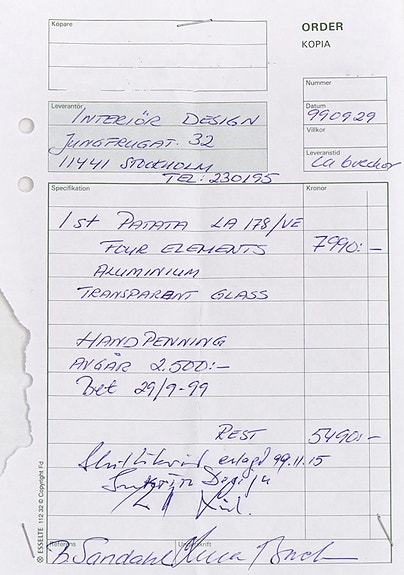 Köpare
ORDER
KOPIA
Nummer
Leverantör
INTERIÖR DESIGN
JUNGFRUGAT. 32
11441 STOCKHOLM
TEL: 230195
Datum
990929
Villkor
Leveranstid
Specifikation
Kronor
1 st PATATA LA 178/VE
FOUR ELEMENTS 7990:-
ALUMINIUM
TRANSPARENT GLASS
HANDPENNING
AVGÅR 2.500:-
Bet 29/9-99
REST 5490:-
erlagd 99.11.15
© ESSELTE 112 32 © Copyright Fd
Referens
Underskrift
B. Sandahl